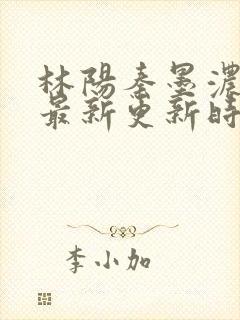 林陽秦墨濃
最新更新時
李小加